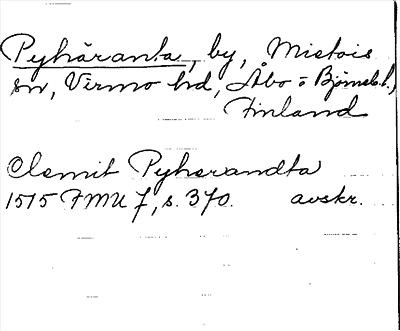 Pyhäranta, by, Mietois
sn, Virmo hd, Åbo o Björneb. l.,
Finland
Clemit Pyherandta
1515 FMU 7, s. 370. avskr.